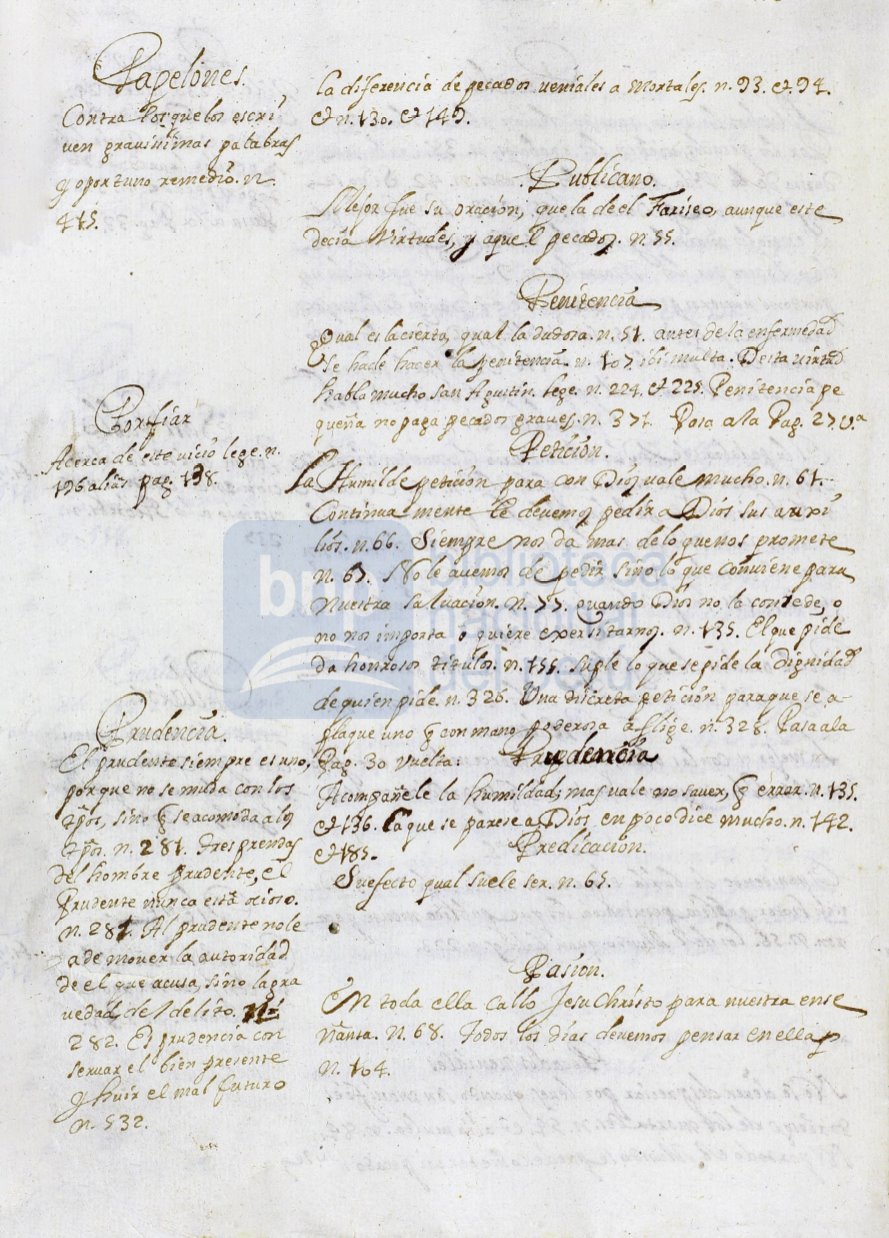 Papelones.
Contra los que los escri
uen grauisimas palabras
y oportuno remedio. n.
415.
Porfiar
Acerca de este vicio lege. n.
196 alias pag. 198.
Prudencia
El prudente siempre es uno,
porque no se muda con los
tp̄os, sino q̄ se acomoda a los
tp̄os. n. 281. Tres prendas
del hombre prudente, el
Prudente nunca està ocioso.
n. 281. Al prudente no le
a de mover la autoridad
de el que acusa, sino la gra
uedad del delito.
282. Es prudencia con
seruar el bien presente
y huir el mal futuro
n. 532.
la diferencia de pecados ueniales a Mortales. n. 93. et 94.
et n. 130. et 149.
Publicano.
Mejor fue su oracion, que la de el Fariseo, aunque este
decia Virtudes, y aquel pecados. n. 55.
Penitencia
Qual es la cierta, qual la dudosa. n. 51. antes de la enfermedad
se ha de hacer la penitencia. n. 107. ibi multa. Desta uirtud
habla mucho San Agustin. lege. n. 224. et 225. Penitencia pe
queña no paga pecados graues. n. 371. Pasa a la Pag. 27. v.ª
Peticion.
La Humilde peticion para con Dios uale mucho. n. 61.
Continuamente le deuemos pedir a Dios sus auxi
lios. n. 66. Siempre nos da mas de lo que nos promete
n. 67. No le auemos de pedir sino lo que conuiene para
nuestra saluacion. n. 77. quando Dios no la concede, o
no nos importa o quiere exersitarnos. n. 135. El que pide
da honrosos titulos. n. 155. Suple lo que se pide la dignidad
de quien pide. n. 326. Una discreta peticion para que se a-
plaque uno q̄ con mano poderosa aflige. n. 328. Pasa ala
Pag. 30 vuelta.
Prudencia
Acompañele la humildad; mas vale no sauer, q̄ errar. n. 135.
et 136. La que se parese a Dios en poco dice mucho. n. 142.
et 185.
Predicacion.
Su efecto qual suele ser. n. 65.
Pasion.
En toda ella callo Jesu Christo para nuestra ense
ñanza. n. 68. Todos los dias deuemos pensar en ella
n. 104.
bnp biblioteca
nacional
del perú